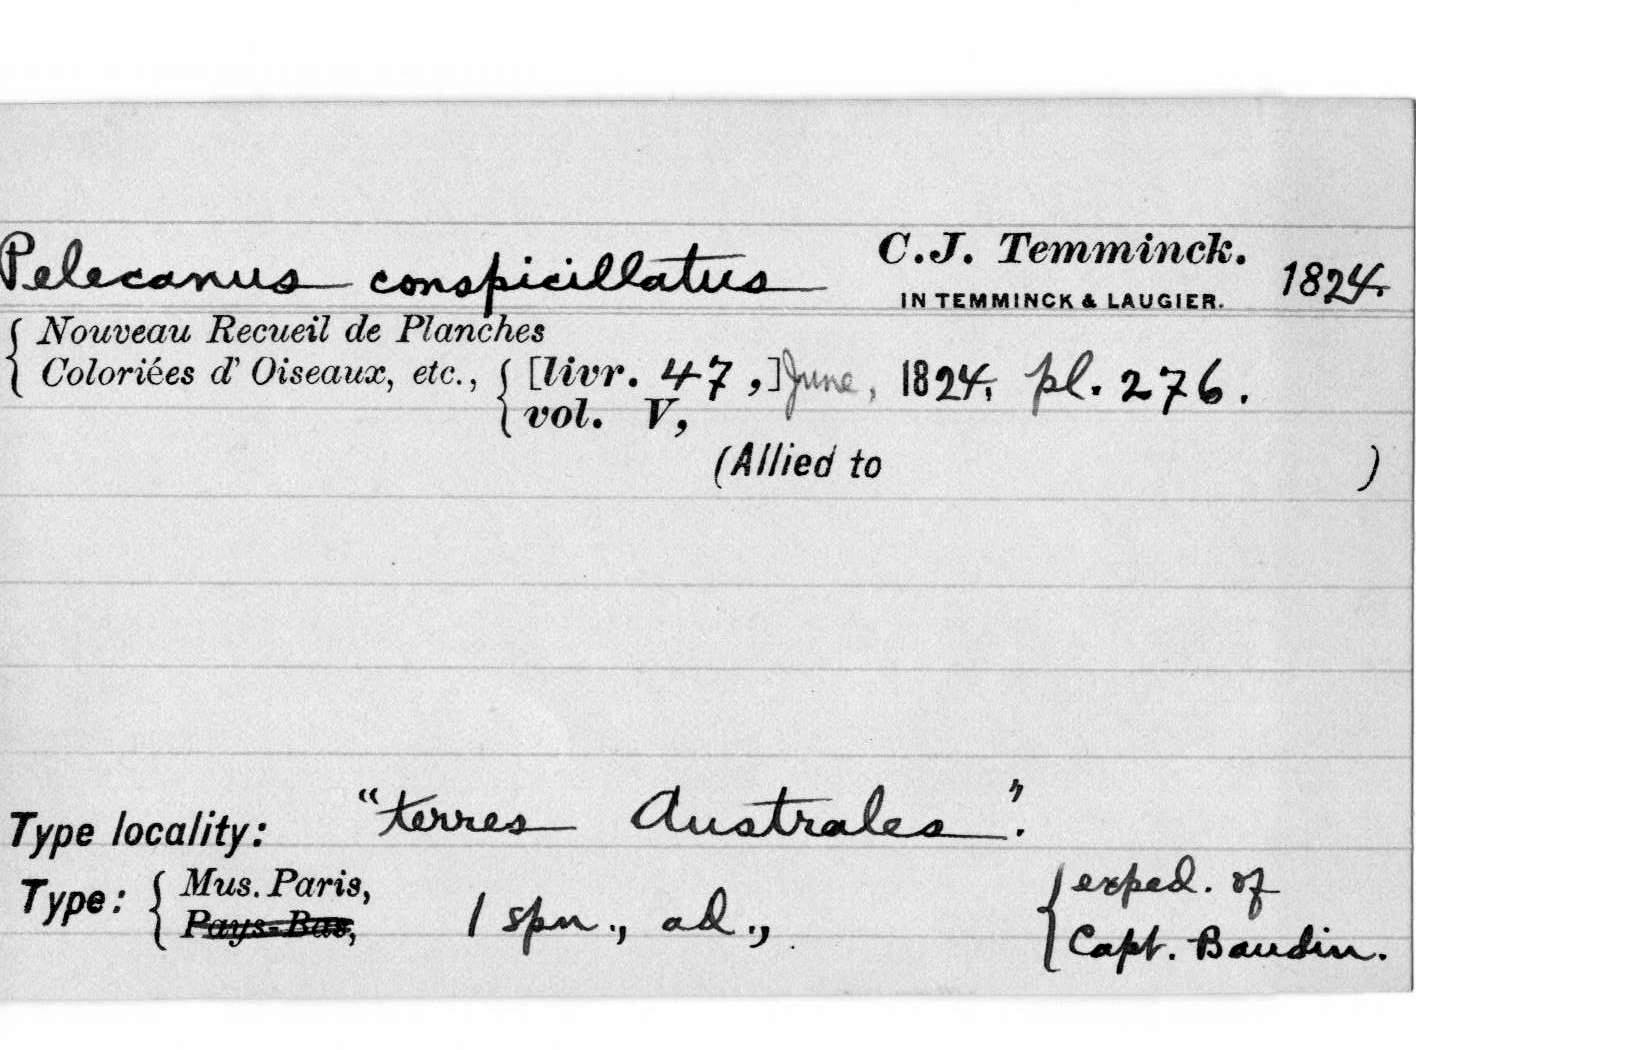 Pelecanus conspicillatus C.J. Temminck. 1824.
IN TEMMINCK & LAUGIER.
{ Nouveau Recueil de Planches
Coloriées d' Oiseaux, etc., { [livr. 47,] June, 1824, pl. 276.
vol. V,
(Allied to )
Type locality: "terres Australes".
Type: { Mus. Paris, 1 spn., ad., { exped. of
Pays-Bas, Capt. Baudin.